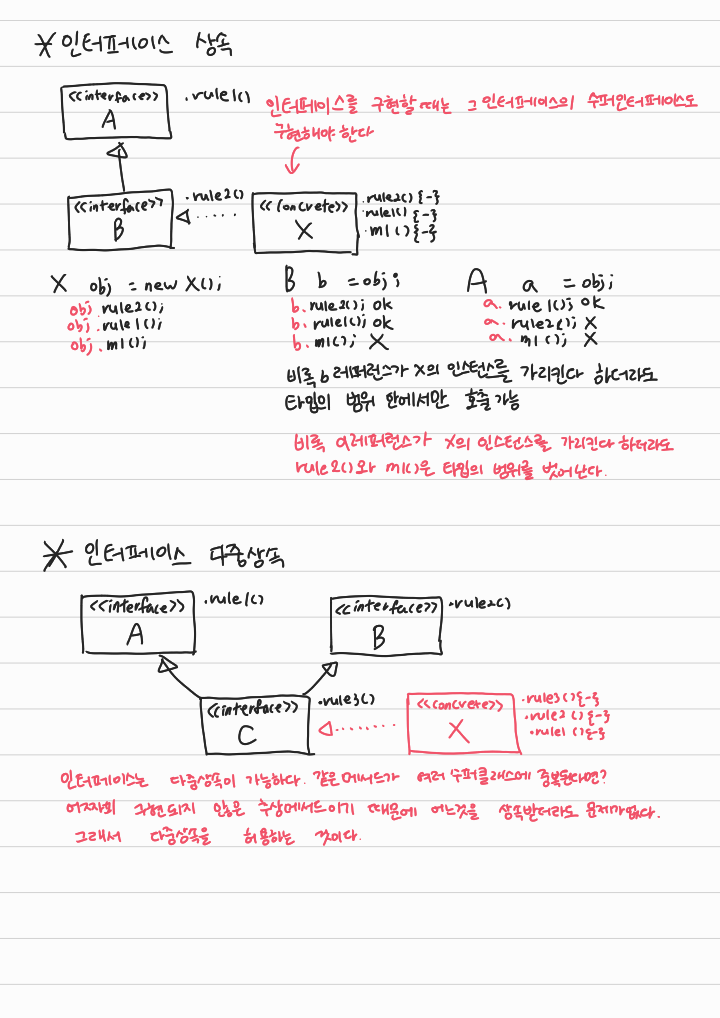 * 인터페이스 상속
<<interface>> .rule1()
A
인터페이스를 구현할 때는 그 인터페이스의 수퍼인터페이스도
구현해야 한다
<<interface>> .rule2()
B
<<concrete>>
X
.rule2() {-}
.rule1() {-}
.m1() {-}
X obj = new X();
obj.rule2();
obj.rule1();
obj.m1();
B b = obj;
b.rule2(); ok
b.rule1(); ok
b.m1(); X
A a = obj;
a.rule1(); ok
a.rule2(); X
a.m1(); X
비록 b레퍼런스가 X의 인스턴스를 가리킨다 하더라도
타입의 범위 안에서만 호출 가능
비록 a레퍼런스가 X의 인스턴스를 가리킨다 하더라도
rule2()와 m1()은 타입의 범위를 벗어난다.
* 인터페이스 다중상속
<<interface>> .rule1()
A
<<interface>> .rule2()
B
<<interface>> .rule3()
C
<<concrete>>
X
.rule3() {-}
.rule2() {-}
.rule1() {-}
인터페이스는 다중상속이 가능하다. 같은 메서드가 여러 수퍼클래스에 중복된다면?
어짜피 구현되지 않은 추상메서드이기 때문에 어느것을 상속받더라도 문제가 없다.
그래서 다중상속을 허용하는 것이다.